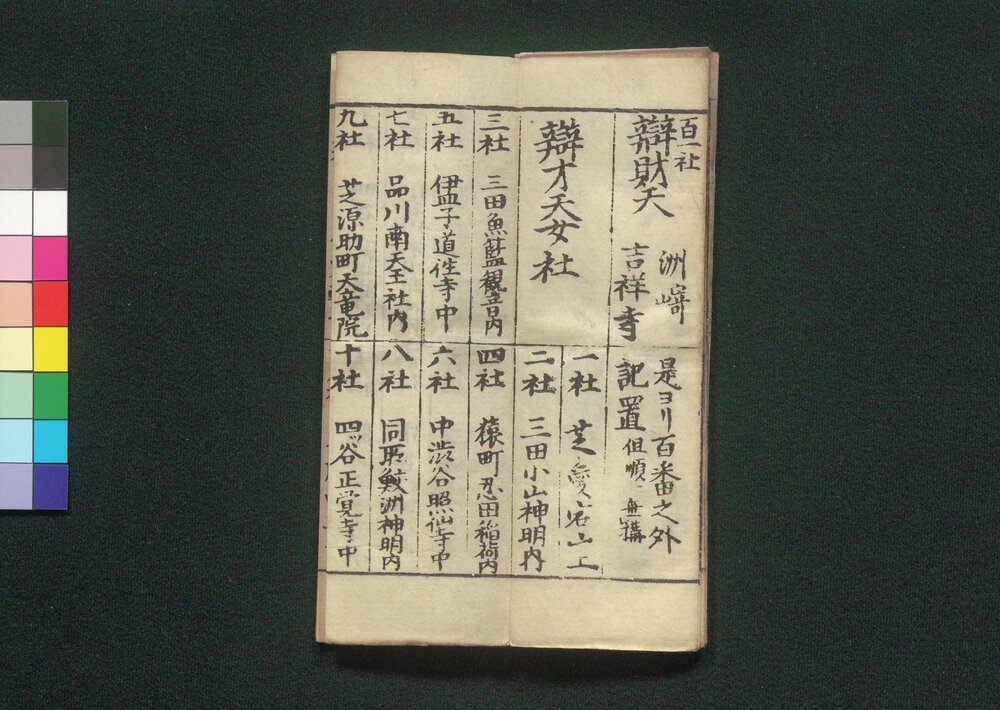 百一社
辯財天
洲﨑
吉祥寺
是ヨリ百番之外
記置
但順ニ無搆
辯才天女社
一社 芝愛宕山上
二社 三田小山神明内
三社 三田魚籃観音内
四社 猿町忍田稲荷内
五社 伊皿子道往寺中
六社 中渋谷照仙寺中
七社 品川南天王社内
八社 同所鮫洲神明内
九社 芝源助町天竜院
十社 四ツ谷正覚寺中